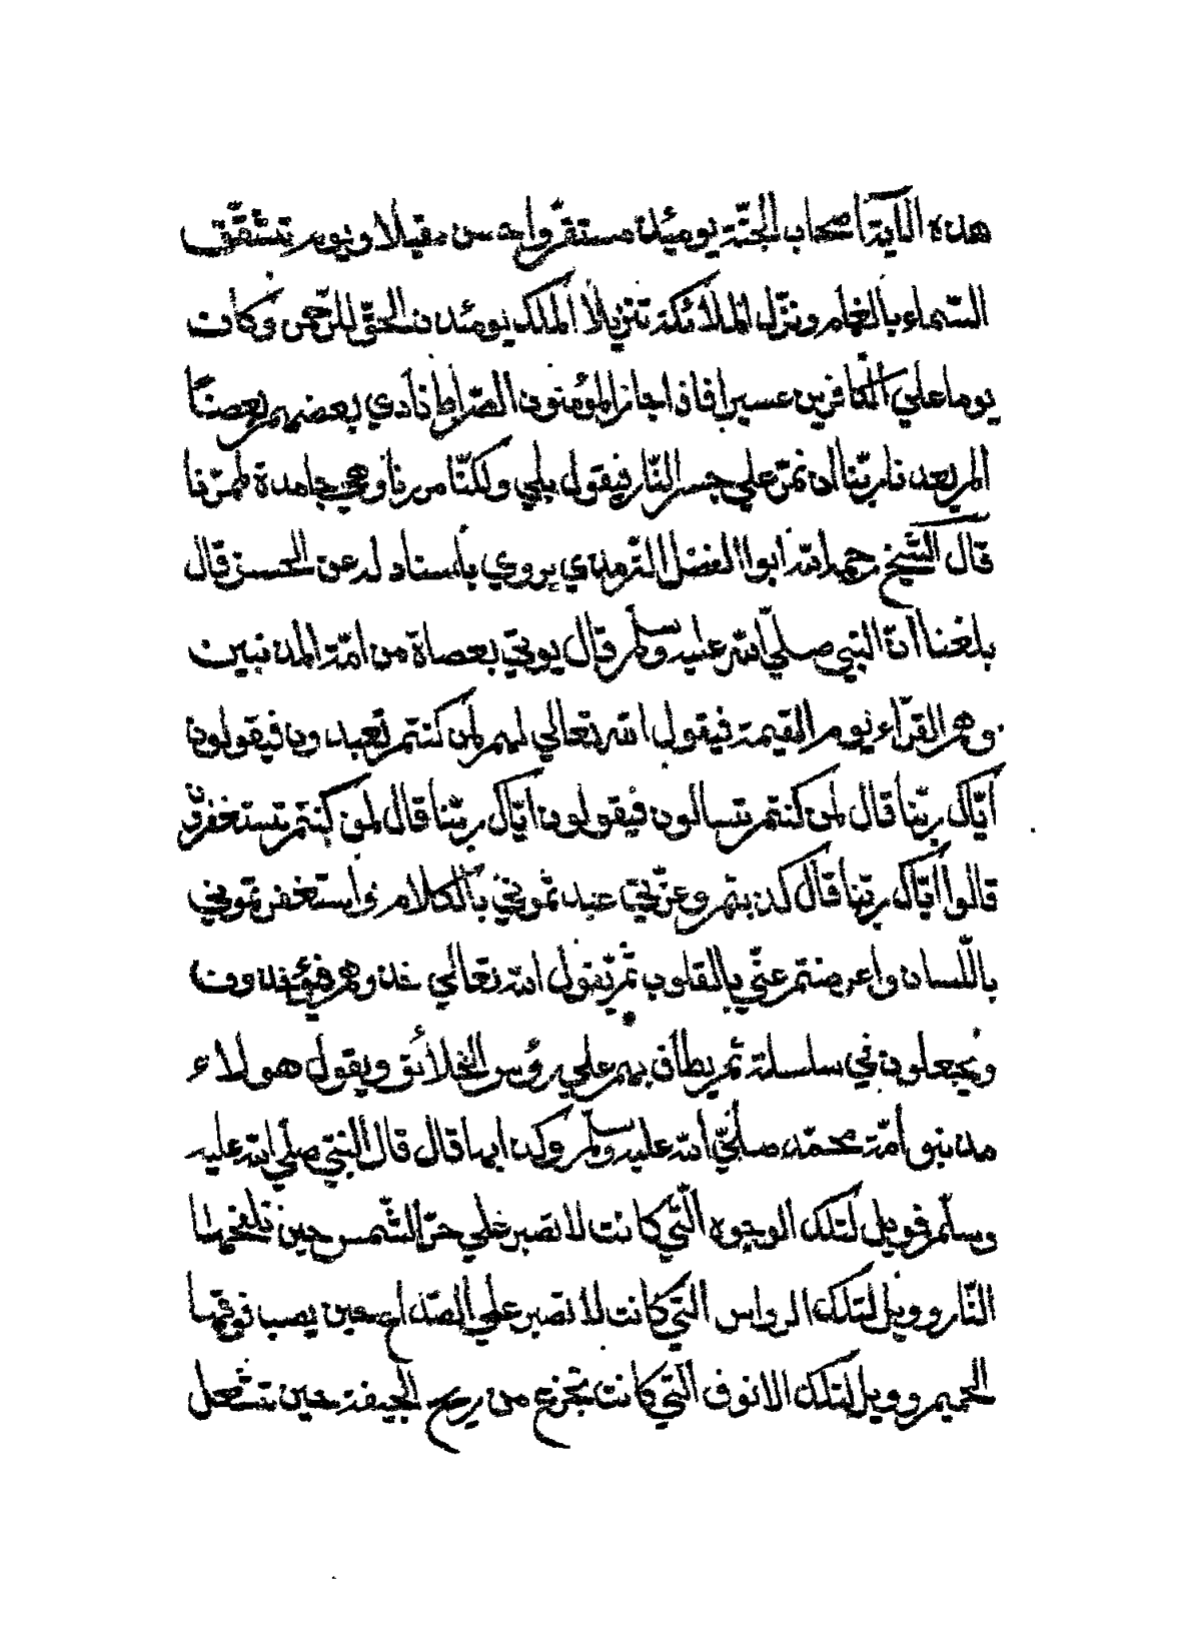 هذه الآية اصحاب الجنّة يومئذ مستقرّوا حسن مقيلا ويوم تشقّق
السّماء بالغمام ونزّل الملائكة تنزيلا الملك يومئذ ن الحقّ للرّحمن وكان
يوما علي الكافرين عسيرا فاذا جاز المؤمنون الصّراط نادي بعضهم بعضا
الم يعدنا ربّنا ان نمرّ علي جسر النّار فيقول بلي ولكنّا مررنا وهي جامدة لممرّنا
قال الشّيخ رحمه الله ابوا الفضل التّرمذي يروي باسناد له عن الحسن قال
بلغنا انّ النبي صلّي الله عليه وسلّم قال يوتي بعصاة من امّته المذنبين
وهم القرّاء يوم القيمة فيقول الله تعالي لهم لمن كنتم تعبدون فيقولون
ايّاك ربّنا قال لمن كنتم تسالون فيقولون ايّاك ربّنا قال لمن كنتم تستغفرون
قالوا ايّاك ربّنا قال كذبتم وعزّتي عبدتموني بالكلام واستغفرتموني
باللّسان واعرضتم عنّي بالقلوب ثمّ يقول الله تعالي خذوهم فيؤخذون
ويجعلون في سلسلة ثم يطاف بهم علي رؤس الخلائق ويقول هولاء
مذنبو امّة محمّد صلّي الله عليه وسلّم وكذابها قال قال النّبيّ صلّي الله عليه
وسلّم فويل لتلك الوجوه الّتي كانت لا تصبر علي حرّ الشّمس حين تلفحها
النّار وويل لتلك الرواس التي كانت لا تصبر علي الصّداع حين يصب فوقها
الحميم وويل لتلك الانوف التي كانت تجزع من ريح الجيفة حين تشعل